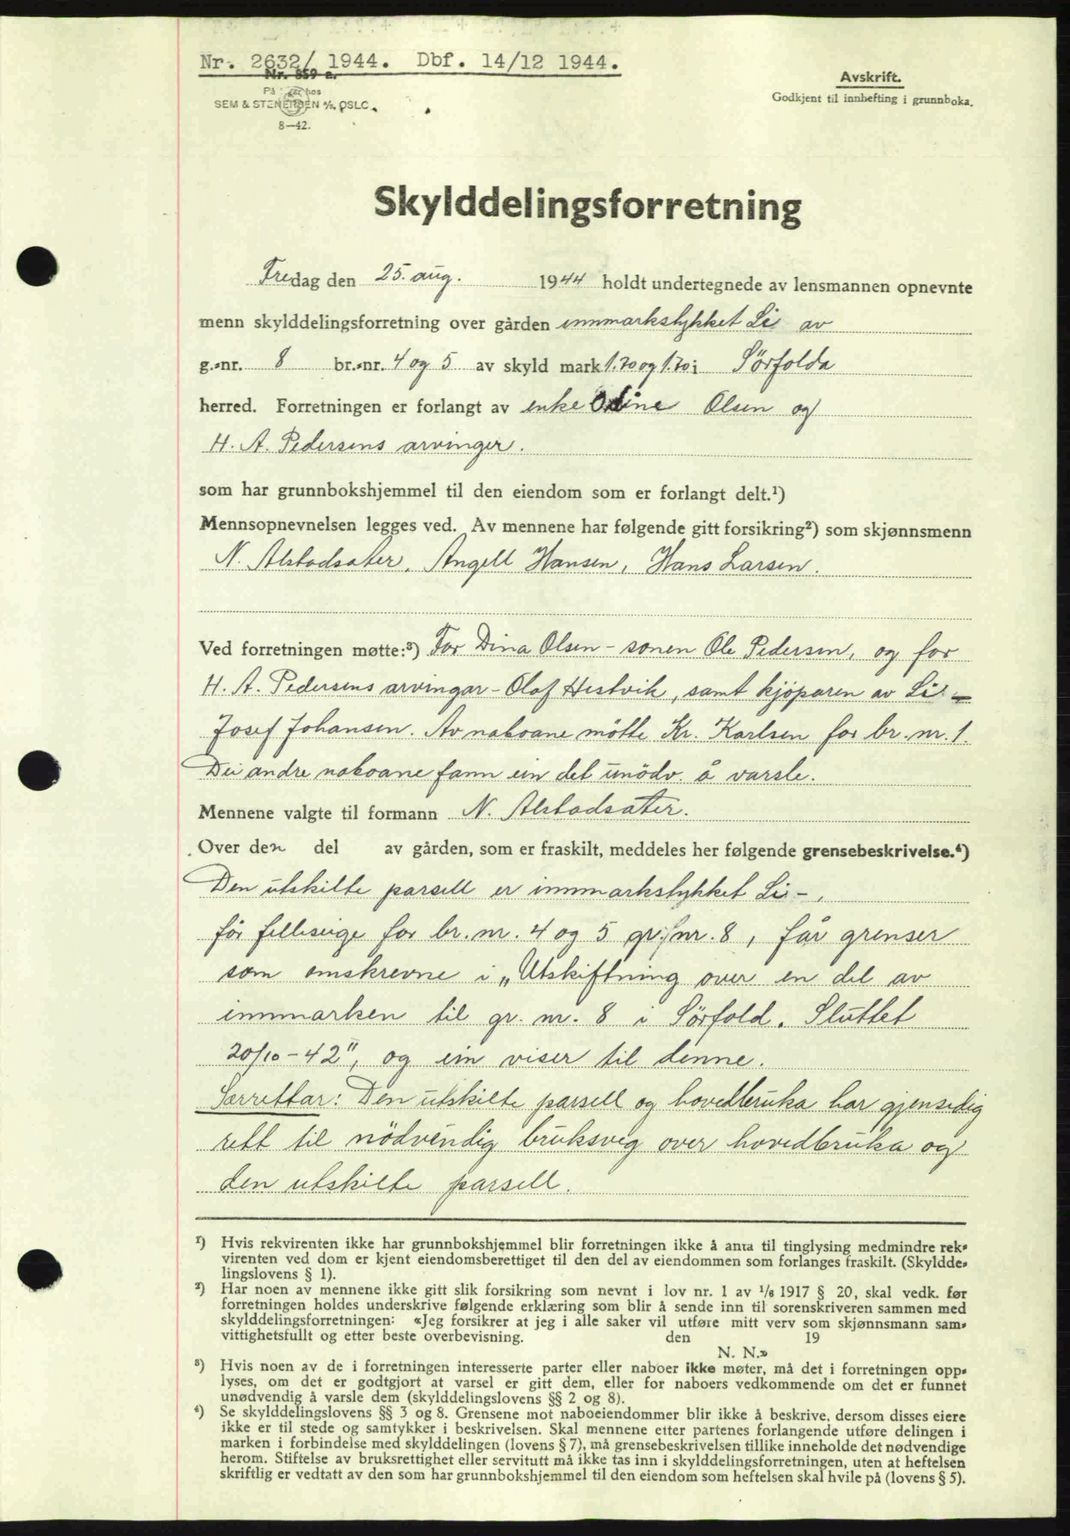 Nr. 2632/ 1944. Dbf. 14/12 1944.
Nr. 859 a.
Avskrift.
Godkjent til innhefting i grunnboka.
SEM & STENERSEN A/S, OSLO.
8—42.
Skylddelingsforretning
Fredag den 25. aug. 1944 holdt undertegnede av lensmannen opnevnte
menn skylddelingsforretning over gården innmarkstykket Li av
g.-nr. 8 br.-nr. 4 og 5 av skyld mark 1.70 og 1.70 i Sörfolda
herred. Forretningen er forlangt av enke Olsen og
H. A. Pedersens arvinger.
som har grunnbokshjemmel til den eiendom som er forlangt delt.¹)
Mennsopnevnelsen legges ved. Av mennene har følgende gitt forsikring²) som skjønnsmenn
N. Alstadsæter, Angell Hansen, Hans Larsen.
Ved forretningen møtte:³) For Dina Olsen – sonen Ole Pedersen, og for
H. A. Pedersens arvingar – Olaf Hestvik, samt kjöparen av Li –
Josef Johansen. Av naboane mötte Kr. Karlsen for br. nr. 1.
Dei andre naboane fann ein det unödv. å varsle.
Mennene valgte til formann N. Alstadsæter.
Over den del av gården, som er fraskilt, meddeles her følgende grensebeskrivelse.⁴)
Den utskilte parsell er innmarkstykket Li –,
för felleseige for br. nr. 4 og 5 gr. nr. 8, får grenser
som omskrevne i „Utskiftning over en del av
innmarken til gr. nr. 8 i Sörfold. Sluttet
20/10 – 42", og ein viser til denne.
Særrettar: Den utskilte parsell og hovedbruka har gjensidig
rett til nödvendig bruksveg over hovedbruka og
den utskilte parsell.
¹) Hvis rekvirenten ikke har grunnbokshjemmel blir forretningen ikke å anta til tinglysing medmindre rek-
virenten ved dom er kjent eiendomsberettiget til den del av eiendommen som forlanges fraskilt. (Skyldde-
lingslovens § 1).
²) Har noen av mennene ikke gitt slik forsikring som nevnt i lov nr. 1 av 1/8 1917 § 20, skal vedk. før
forretningen holdes underskrive følgende erklæring som blir å sende inn til sorenskriveren sammen med
skylddelingsforretningen: «Jeg forsikrer at jeg i alle saker vil utføre mitt verv som skjønnsmann sam-
vittighetsfullt og etter beste overbevisning. den 19
N. N.»
³) Hvis noen av de i forretningen interesserte parter eller naboer ikke møter, må det i forretningen opp-
lyses, om det er godtgjort at varsel er gitt dem, eller for naboers vedkommende om det er funnet
unødvendig å varsle dem (skylddelingslovens §§ 2 og 8).
⁴) Se skylddelingslovens §§ 3 og 8. Grensene mot naboeiendommer blir ikke å beskrive, dersom disses eiere
ikke er til stede og samtykker i beskrivelsen. Skal mennene etter partenes forlangende utføre delingen i
marken i forbindelse med skylddelingen (lovens § 7), må grensebeskrivelsen tillike inneholde det nødvendige
herom. Stiftelse av bruksrettighet eller servitutt må ikke tas inn i skylddelingsforretningen, uten at heftelsen
skriftlig er vedtatt av den som har grunnbokshjemmel til den eiendom som heftelsen skal hvile på (lovens § 5).